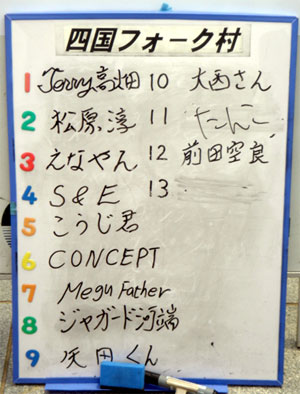 四国フォーク村
1 Jerry高畑
2 松原淳
3 えなやん
4 S&E
5 こうじ君
6 CONCEPT
7 Megu Father
8 ジャガード河端
9 矢田くん
10 大西さん
11 たんこ
12 前田空良
13